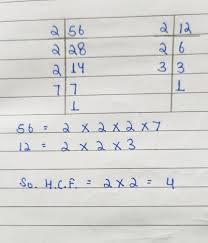 2 | 56    2 | 12
2 | 28    2 | 6
2 | 14    3 | 3
7 | 7    | 1
| 1
56 = 2 × 2 × 2 × 7
12 = 2 × 2 × 3
So. H.C.F. = 2 × 2 = 4